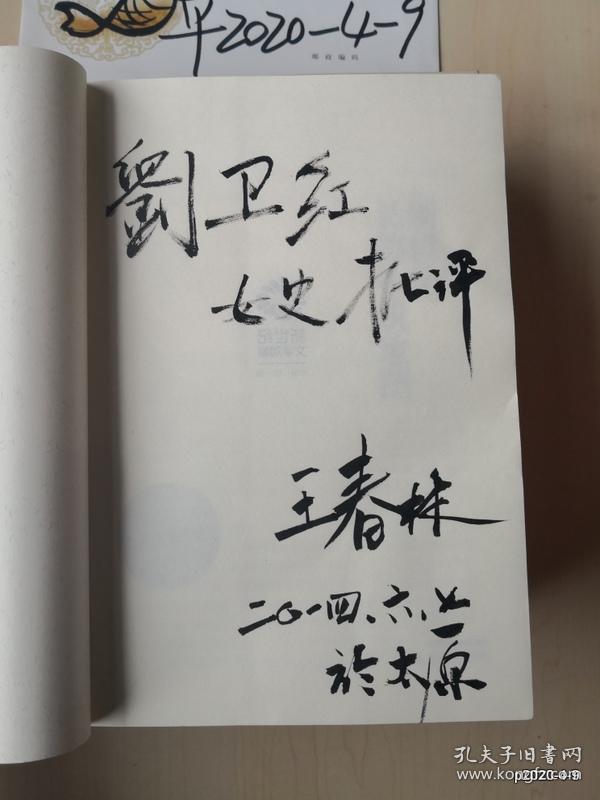 平2020-4-9
邮政编码
劉卫红
女史批评
王春林
二〇一四、六、廿一
於太原
孔夫子旧书网
www.kongfz.com
2020-4-9